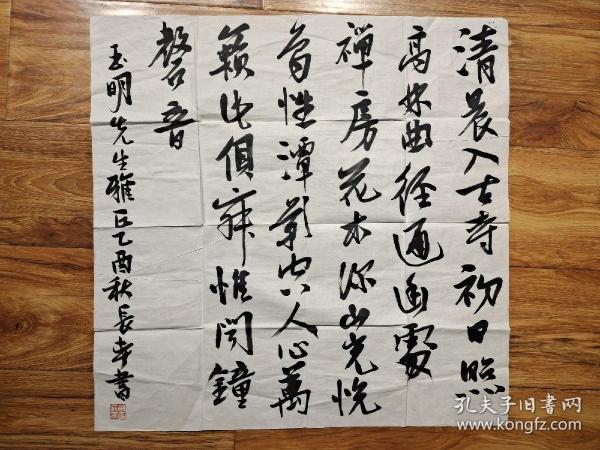 清晨入古寺初日照
高林曲径通幽處
禅房花木深山光悦
鸟性潭影空人心萬
籟此俱寂惟闻鐘
磬音
玉明先生雅正乙酉秋長安書
孔夫子旧書网
www.kongfz.com